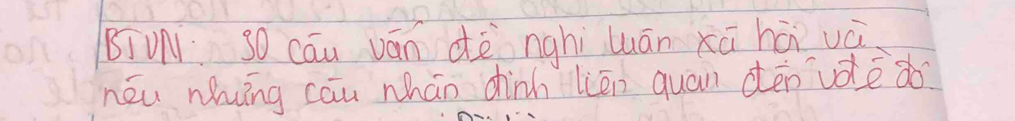 BTVN: 30 câu vấn đề nghị luận xã hội và
nêu những câu nhận định liên quan đến vđề đó